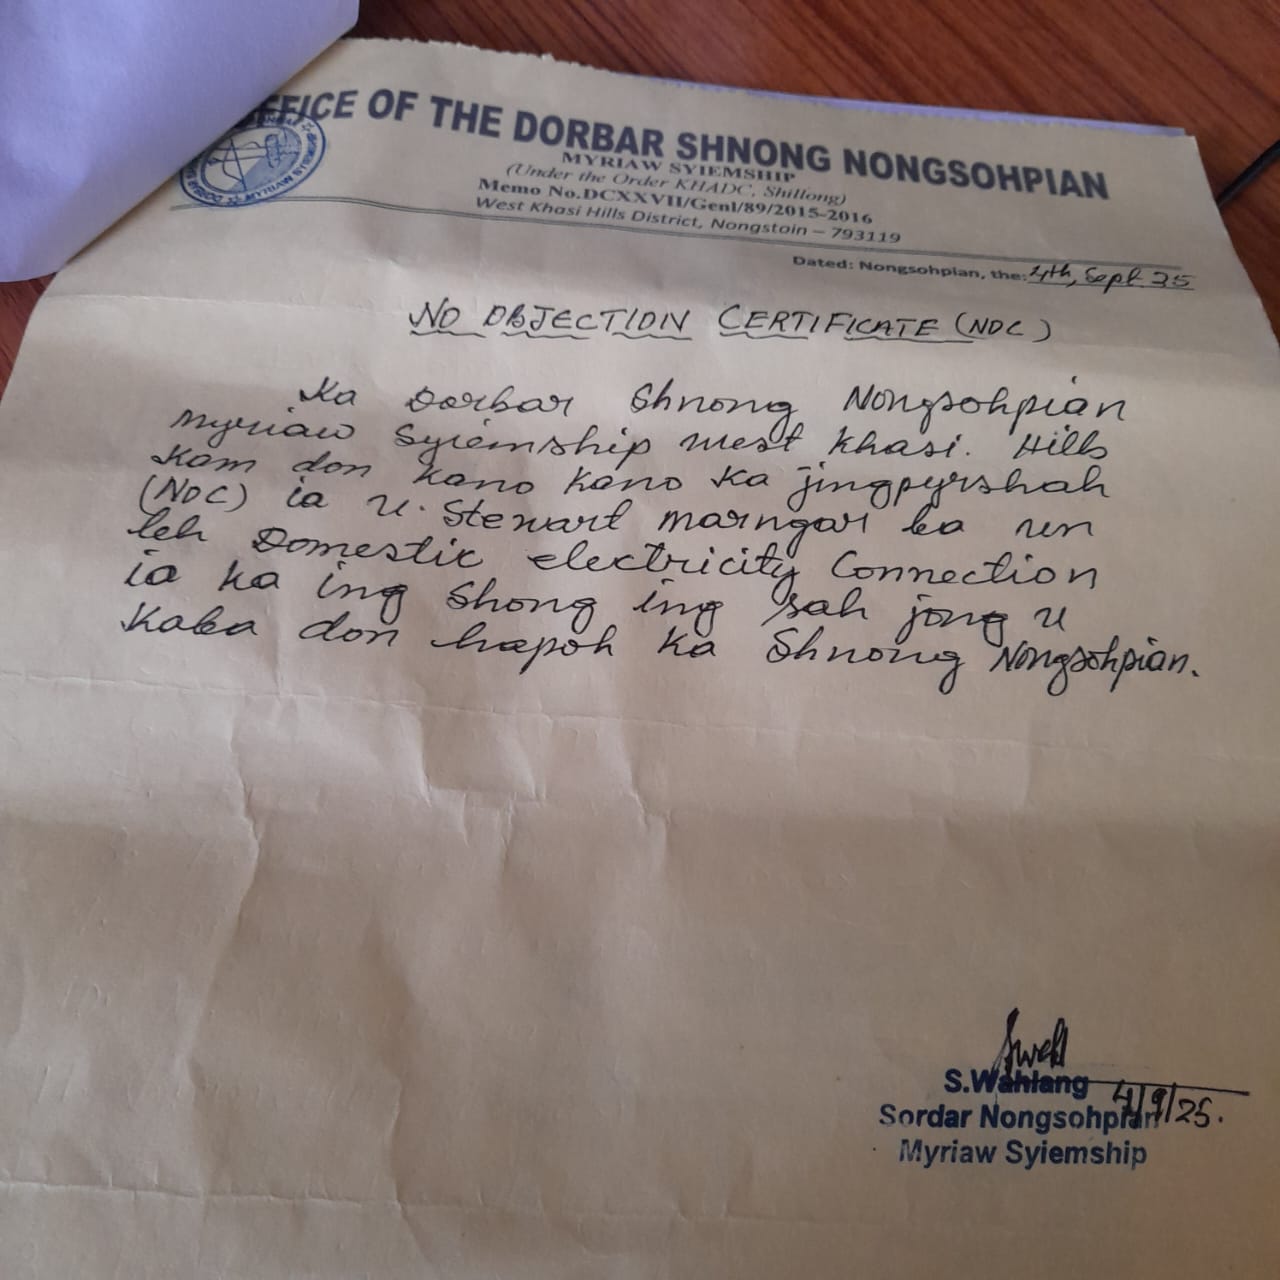 OFFICE OF THE DORBAR SHNONG NONGSOHPIAN
MYRIAW SYIEMSHIP
(Under the Order KHADC, Shillong)
Memo No.DCXXVII/Genl/89/2015-2016
West Khasi Hills District, Nongstoin – 793119
Dated: Nongsohpian, the: 4th, Sept 25
NO OBJECTION CERTIFICATE (NOC)
Ka Dorbar Shnong Nongsohpian
Myriaw Syiemship West Khasi. Hills
Kam don kano kano ka jingpyrshah
(NOC) ia U. Stewart Marngar ba un
leh Domestic electricity Connection
ia ka ing shong ing sah jong u
kaba don hapoh ka Shnong Nongsohpian.
S.Wahlang
4/9/25.
Sordar Nongsohpian
Myriaw Syiemship